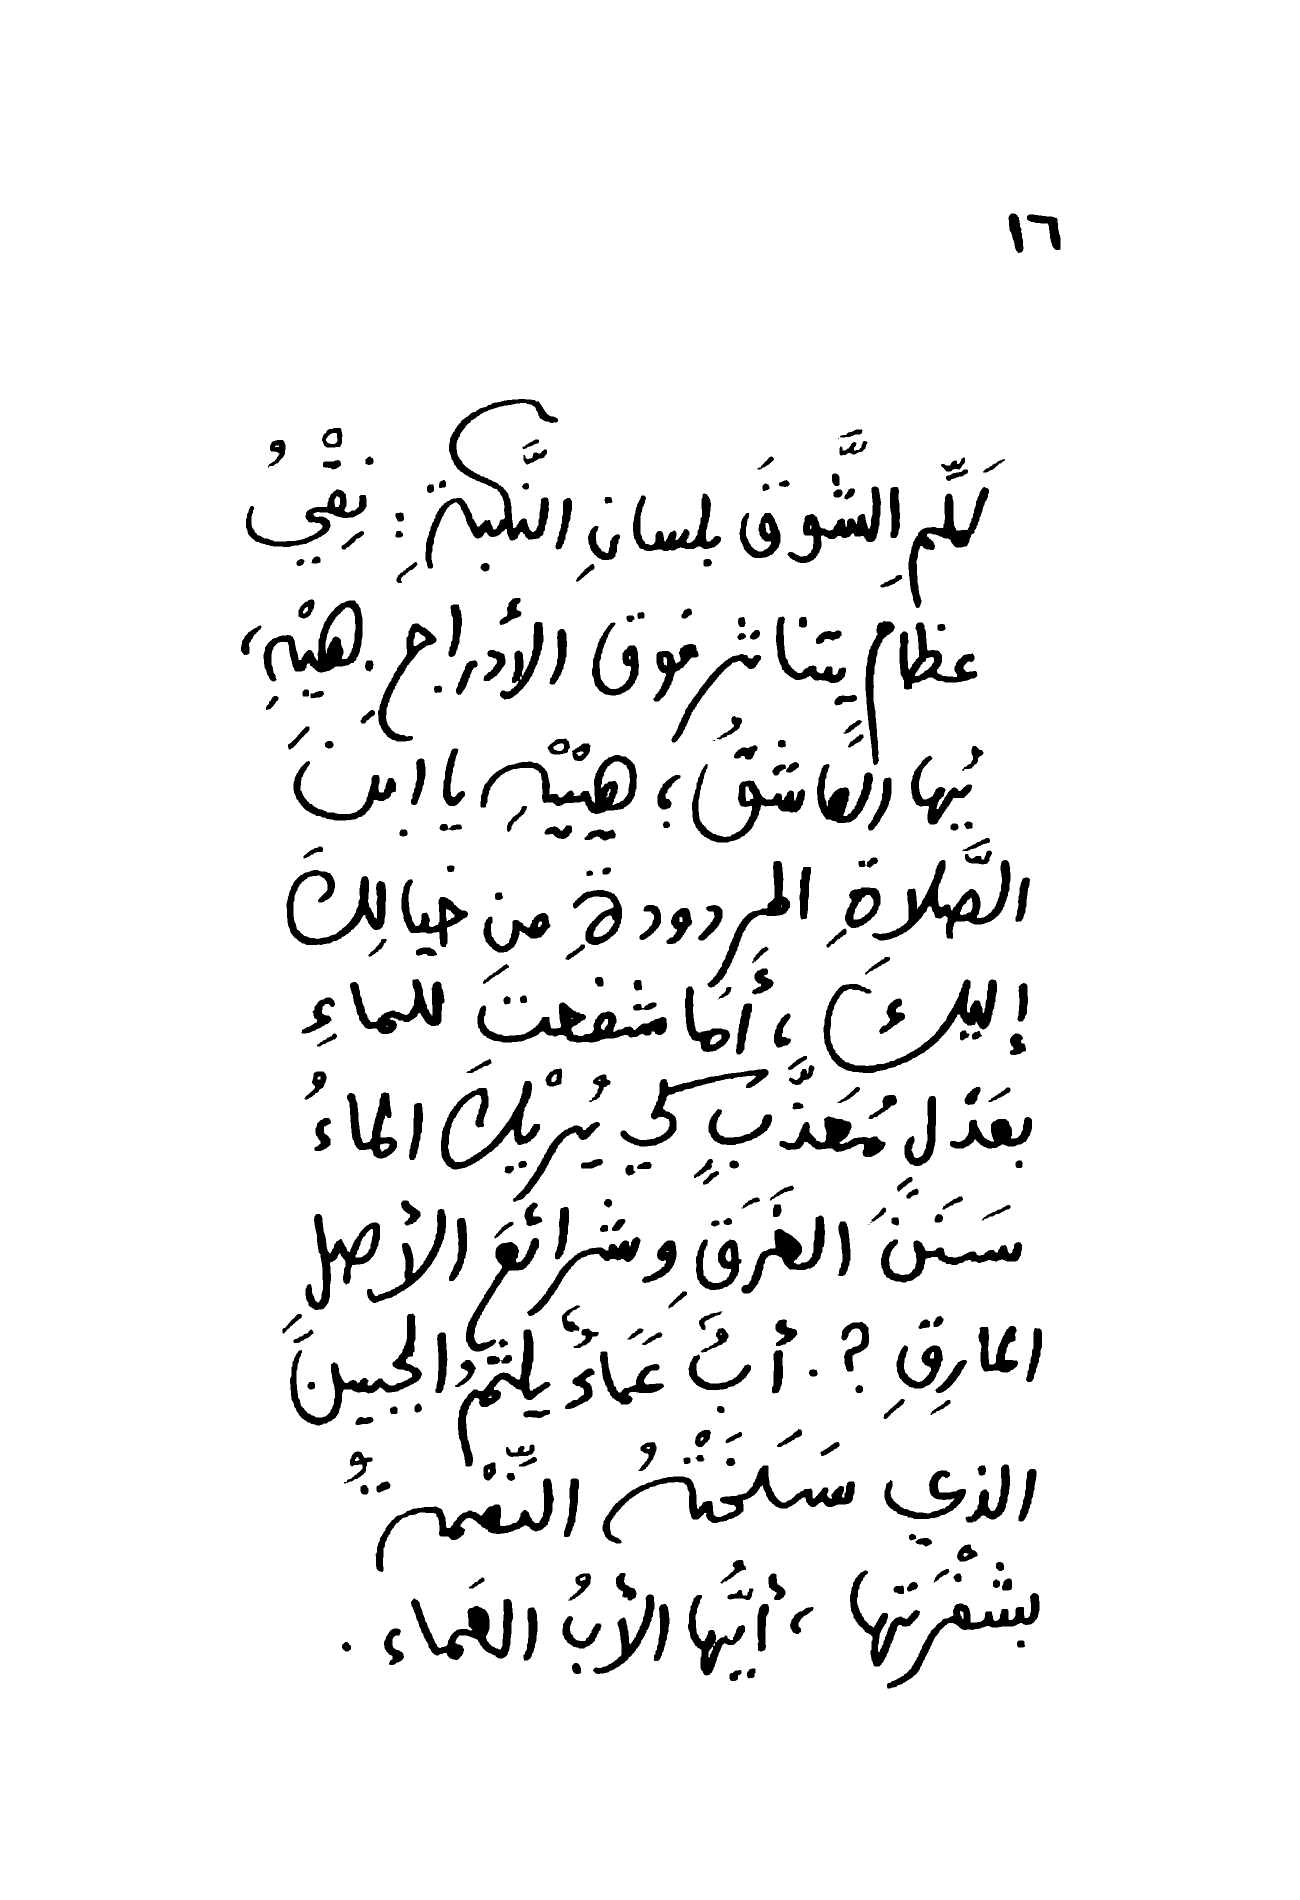 ١٦
كَلِّمِ الشَّوقَ بلسانِ النَّكبةِ : نِقْيُ
عظامٍ يتناثر فوق الأدراجِ . هيْهِ،
يُها العاشقُ ؛ هيْيْهِ يا ابنَ
الصَّلاةِ المردودةِ من خيالِكَ
إليك ، أَمَا شفعتَ للماءِ
بعَذْلٍ مُعَذَّبٍ كي يُرْيْكَ الماءُ
سَنَنََ الغَرَقِ وشرائعَ الأصلِ
المارِقِ ؟ . أبٌ عَمَاءٌ يلتمُ الجبينَ
الذي سَلَخَتْهُ النِّعْمةُ
بشفْرَتها ، أيُّها الأبُ العَماء .